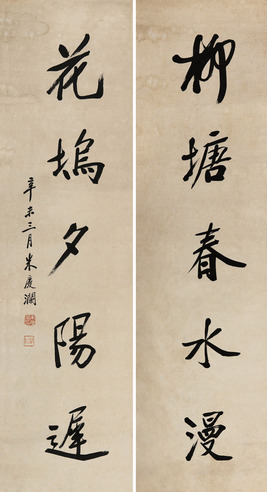 柳塘春水漫
花塢夕陽遲
辛未三月朱慶瀾